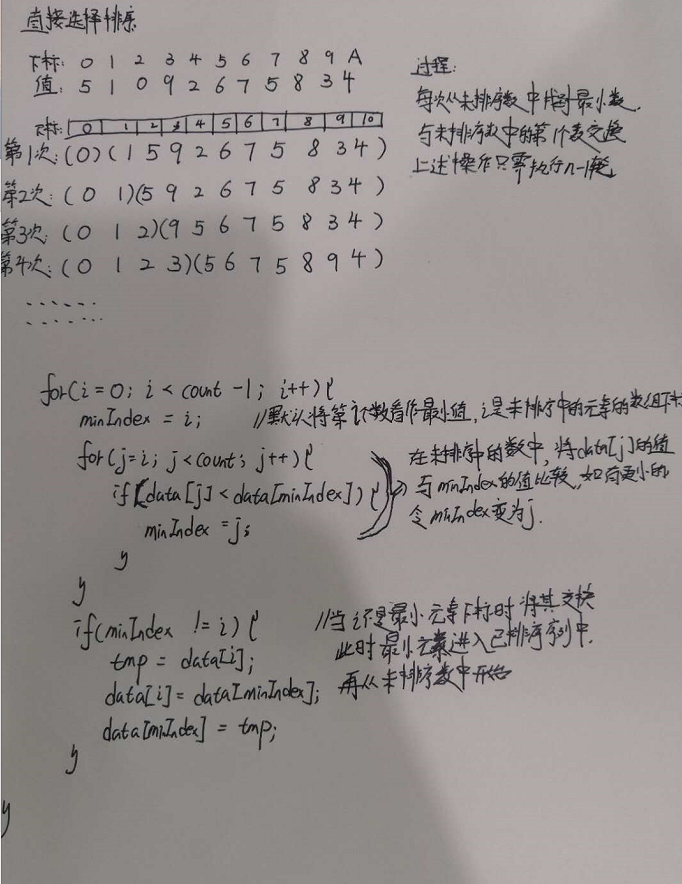 直接选择排序
下标: 0 1 2 3 4 5 6 7 8 9 A
值: 5 1 0 9 2 6 7 5 8 3 4
过程:
每次从未排序数中找到最小数.
与未排序数中的第1个数交换
上述操作只需执行n-1趟
下标: 0 1 2 3 4 5 6 7 8 9 10
第1次:(0)(1 5 9 2 6 7 5 8 3 4)
第2次:(0 1)(5 9 2 6 7 5 8 3 4)
第3次:(0 1 2)(9 5 6 7 5 8 3 4)
第4次:(0 1 2 3)(5 6 7 5 8 9 4)
......
......
for(i=0; i<count-1; i++){
minIndex = i; //默认将第i个数看作最小值, i是未排序中的元素的数组下标
for(j=i; j<count; j++){
if(data[j]<data[minIndex]){
minIndex = j;
}
}
在未排序中的数中, 将data[j]的值
与minIndex的值比较, 如有更小的
令minIndex变为j.
if(minIndex != i){ //当i不是最小元素下标时将其交换
tmp = data[i]; 此时最小元素进入已排序序列中.
data[i]= data[minIndex]; 再从未排序数中开始
data[minIndex] = tmp;
}
}